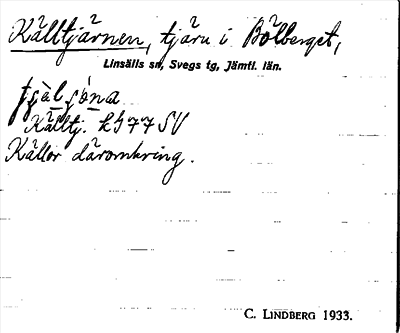 Källtjärnen, tjärn i Bölberget,
Linsälls sn, Svegs tg, Jämtl. län.
Källtj. k 77 SV
Källor däromkring.
C. LINDBERG 1933.